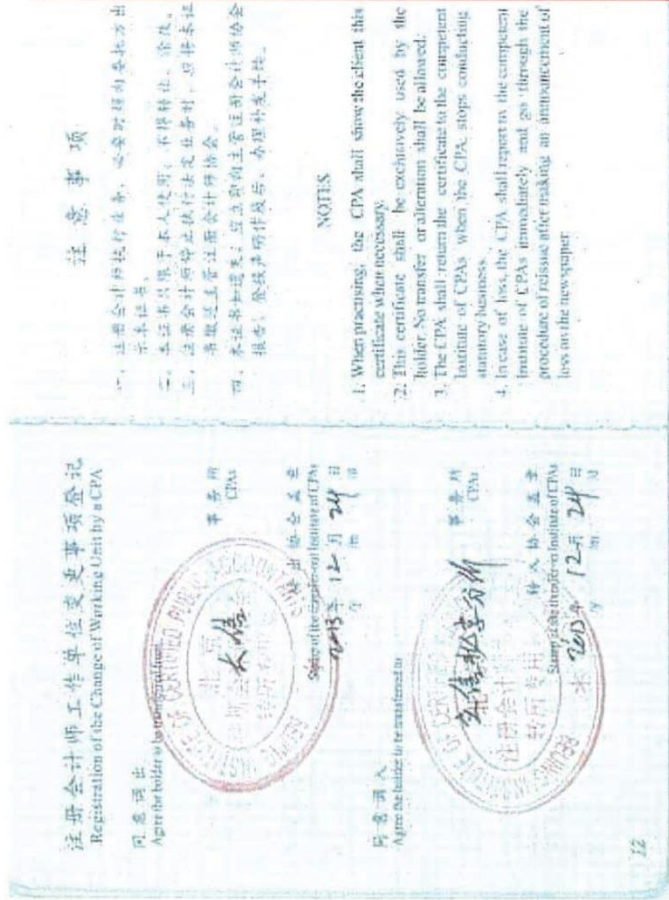 注册会计师工作单位变更事项登记
Registration of the Change of Working Unit by a CPA
同意调出
Agree the holder to be transferred from
大信
事务所
CPAs
转出协会盖章
Stamp of the transfer-out Institute of CPAs
2013年 12月 24日
同意调入
Agree the holder to be transferred to
事务所
CPAs
转入协会盖章
Stamp of the transfer-in Institute of CPAs
2013年 12月 24日
12
注意事项
一、注册会计师执行业务，必要时须向委托方出
示本证书。
二、本证书只限于本人使用，不得转让、涂改。
三、注册会计师停止执行法定业务时，应将本证
书缴还主管注册会计师协会。
四、本证书如遗失，应立即向主管注册会计师协会
报告，登报声明作废后，办理补发手续。
NOTES
1. When practising, the CPA shall show the client this
certificate when necessary.
2. This certificate shall be exclusively used by the
holder. No transfer or alteration shall be allowed.
3. The CPA shall return the certificate to the competent
Institute of CPAs when the CPA stops conducting
statutory business.
4. In case of loss, the CPA shall report to the competent
Institute of CPAs immediately and go through the
procedure of reissue after making an announcement of
loss on the newspaper.